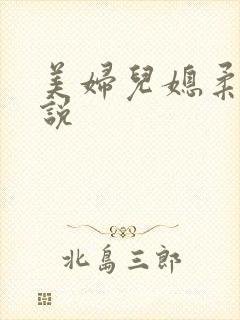 美婦兒媳柔
說
北島三郎